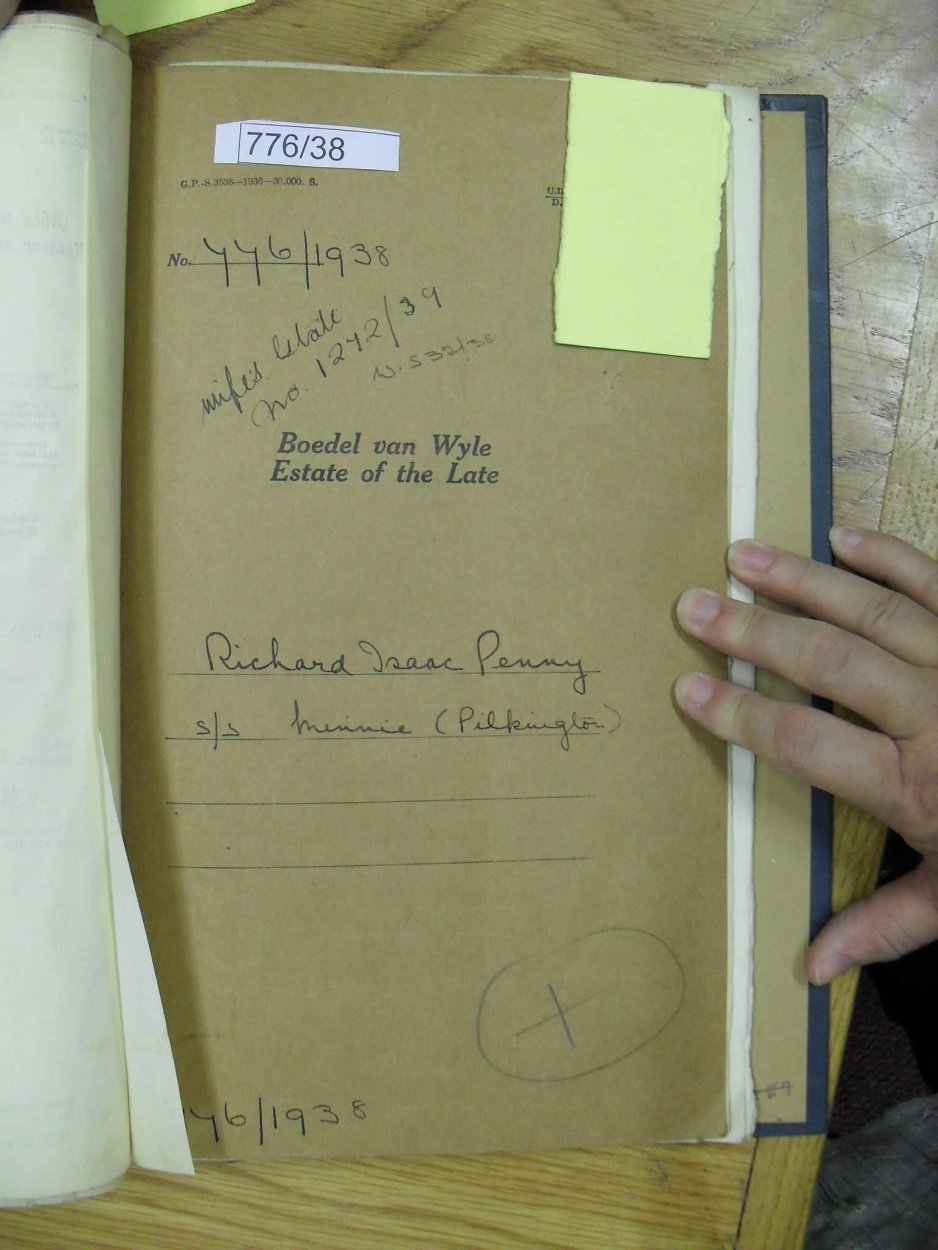 776/38
G.P.-S.3538—1936—30,000. S.
U.D
D.
No. 776/1938
wife's Estate
No. 1272/39
N.S 32/38
Boedel van Wyle
Estate of the Late
Richard Isaac Penny
s/s Minnie (Pilkington)
76/1938